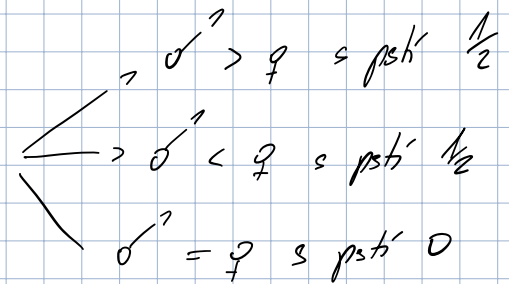 ♂ > ♀ s pstí 1/2
♂ < ♀ s pstí 1/2
♂ = ♀ s pstí 0